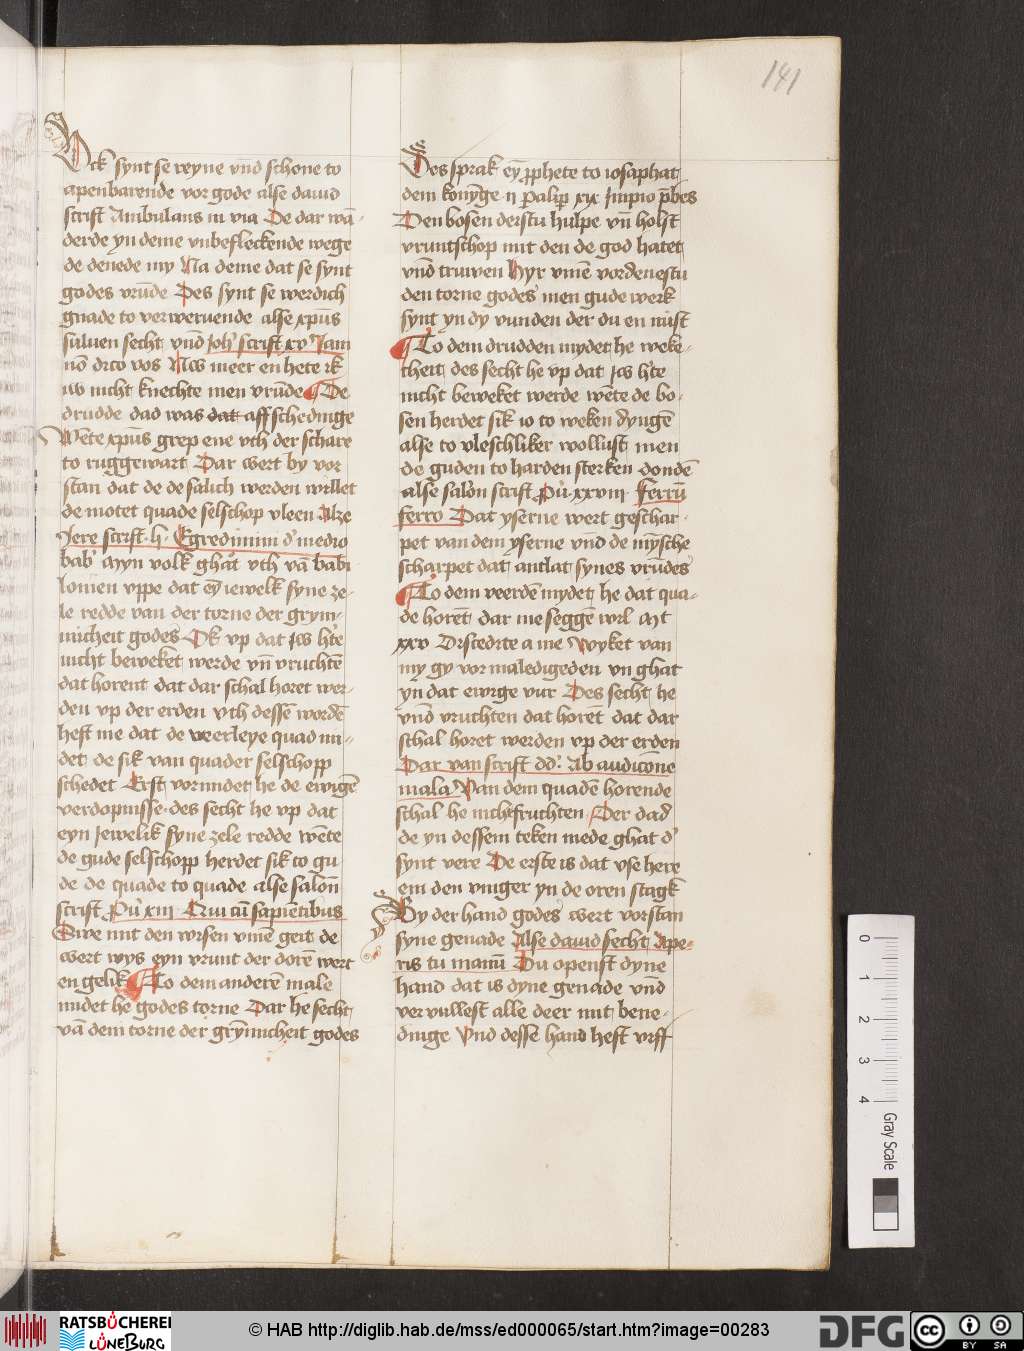 141
Ock synt se reyne vnd schone to
apenbarende vor gode alse dauid
scrift Ambulans in via De dar wā-
derde yn deme vnbefleckende wege
de denede my Na deme dat se synt
godes vrūde Des synt se werdich
gnade to vorweruende alse xpūs
suluen secht vnd joh' scrift xv Jam
nō dico vos Nw meer en hete ik
iw nicht knechte men vrūde De
drudde dad was dat affschedinge
Wēte xpūs grep ene vth der schare
to ruggewart Dar wert by vor
stan dat de de salich werden willet
de motet quade selschop vleen Alze
Jere scrift li Egredimini d' medio
bab' Myn volk ghāt vth vā babi
lonien vppe dat eȳ iewelk syne ze-
le redde van der torne der grym-
micheit godes Ok vp dat iw h'te
nicht beweket werde vn̄ vruchtē
dat horent dat dar schal horet wer-
den vp der erden vth dessē wordē
heft me dat de veerleye quad mi-
det de sik van quader selschopp
schedet Erst vormidet he de ewigē
verdopnisse des secht he vp dat
eyn Jewelik syne zele redde wēte
de gude selschopp herdet sik to gu
de de quade to quade alse salōn
scrift P'u xiii Qui cū sapiētibus
Swe mit den wysen vmē geit de
wert wys eyn vrunt der dorē wert
en gelik To dem anderē male
midet he godes torne Dar he secht
vā dem torne der grȳmicheit godes
Des sprak eȳ pphete to iosaphat
dem konȳge ii Palip xix Impio p̄bes
Den bosen deistu hulpe vn̄ holst
vruntschop mit den de god hatet
vnd truwen Hyr vmē vordenestu
den torne godes men gude werk
synt yn dy vunden der du en mist
To dem drudden mydet he weke-
theit des secht he vp dat iw h'te
nicht beweket werde wēte de bo-
sen herdet sik io to weken dyngē
alse to vleschliker wollust men
de guden to harden sterken dondē
alse salōn scrift P'u xxvii ferrū
ferro Dat yserne wert geschar-
pet van dem yserne vnd de mȳsche
scharpet dat antlat synes vrūdes
To dem veerdē mydet he dat qua-
de horēt dar me seggē wil Mt
xxv Discedite a me Wyket van
my gy vormaledigeden vn ghat
yn dat ewige vur Des secht he
vnd vruchten dat horēt dat dar
schal horet werden vp der erden
Dar van scrift dd' Ab audicōne
mala Van dem quadē horende
schal he nicht fruchten Der dad'
de yn dessem teken mede ghat d'
synt vere De erste is dat vse here
em den vinger yn de oren stagk
By der hand godes wert vorstan
syne genade Alse dauid secht Ape-
ris tu manū Du openst dyne
hand dat is dyne genade vnd
vervullest alle deer mit bene-
dinge Vnd desse hand heft viff
0
1
2
3
4
Gray Scale
RATSBÜCHEREI
LÜNEBURG
© HAB http://diglib.hab.de/mss/ed000065/start.htm?image=00283
DFG
cc BY SA